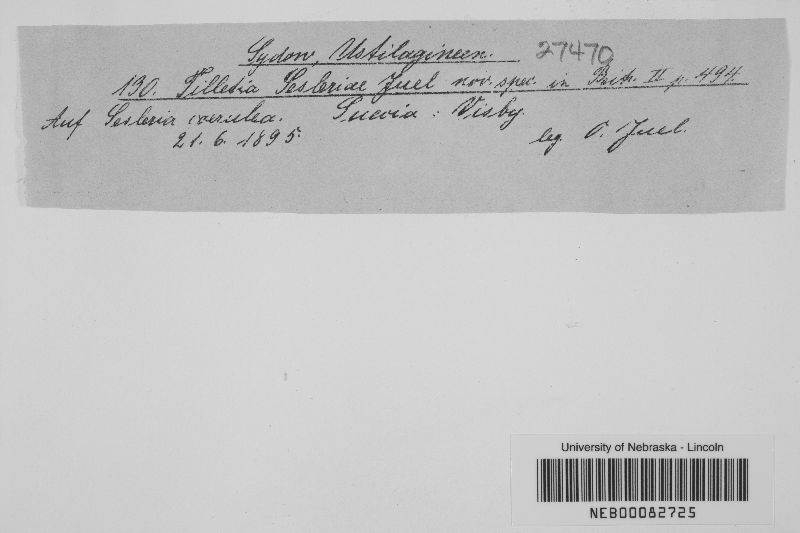 Sydow, Ustilagineen. 27470
130. Tilletia Sesleriae Juel nov. spec. in Beitr. II p. 494.
Auf Sesleria coerulea. Suecia: Visby.
21. 6. 1895. leg. O. Juel.
University of Nebraska - Lincoln
NEB00082725